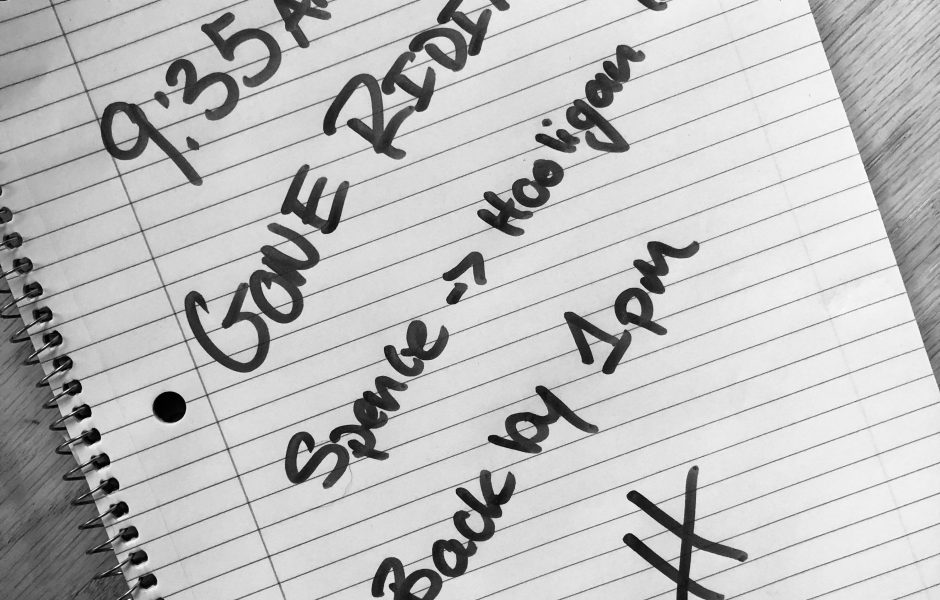 9:35 AM
GONE RIDIN
Spence → Hooligan
Back by 1pm